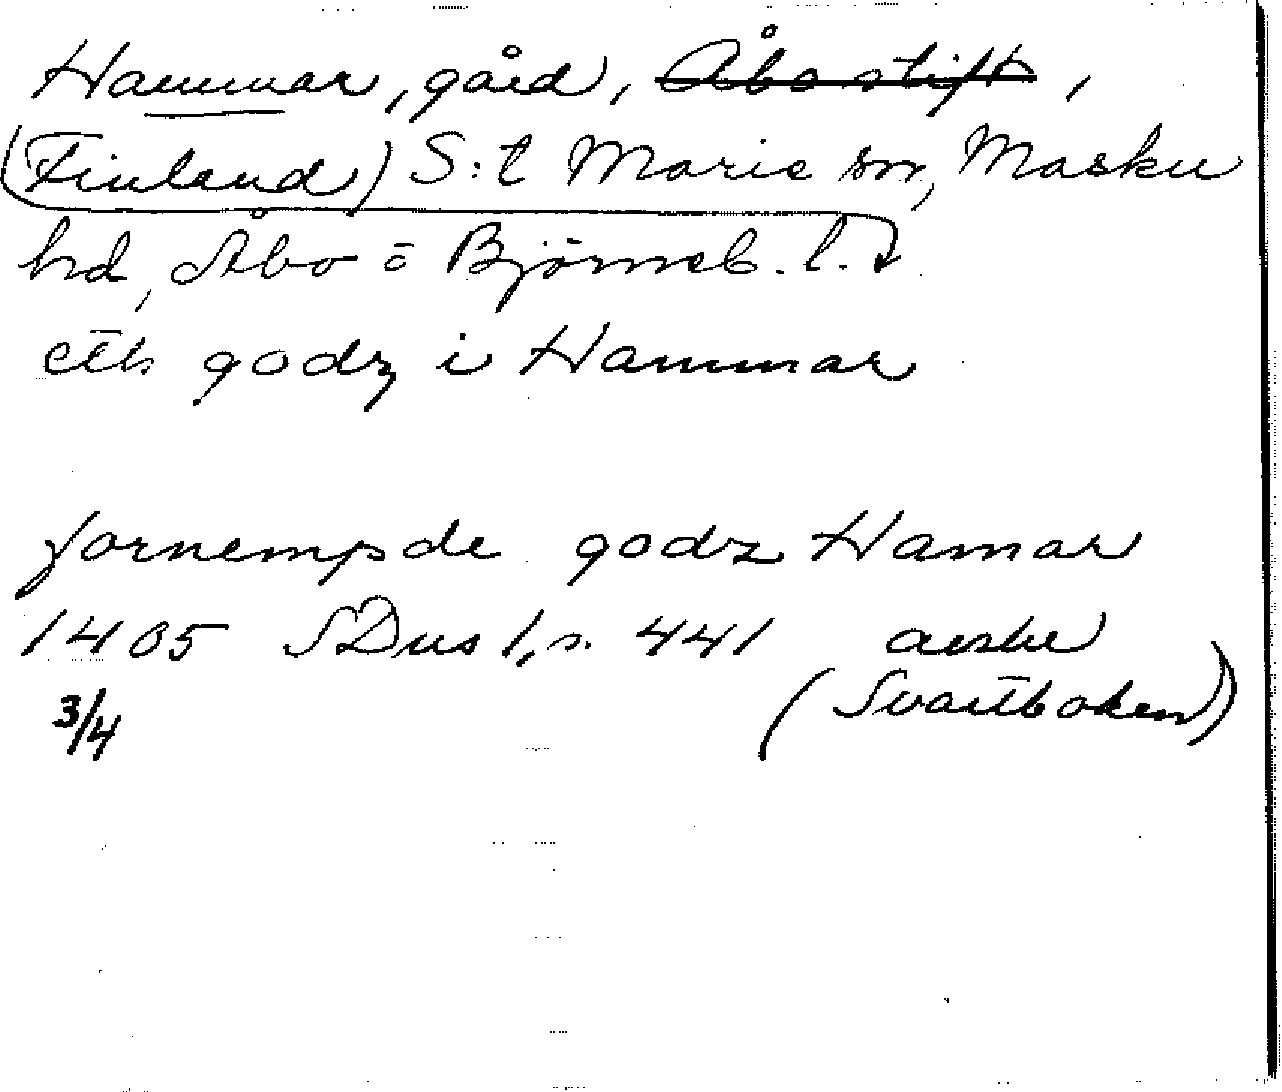 Hammar, gård, Åbo stift,
(Finland) S:t Marie sn, Masku
hd, Åbo o Björneb. l.
eth godz i Hammar
fornempde godz Hamar
1405 SDns 1, s. 441 avskr
3/4 (Svartboken)